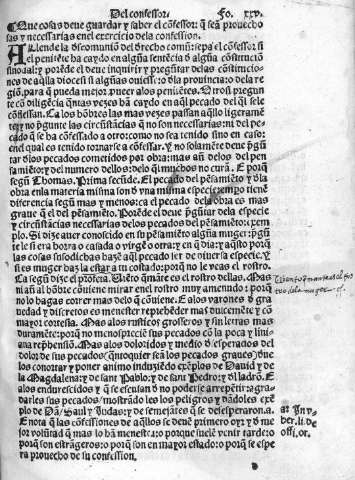 Del confessor. Fo. xxv.
Que cosas deue guardar y saber el cõfessor: q̃ seã prouecho
sas y necessarias enel exercicio dela confession.
Allende la descomuniõ del derecho comũ: sepa el cõfessor si
el penitẽte ha caydo en algũa sentẽcia d̃ algũa cõstituciõ
sinodal: y
d̃ aq̃lla diocesi si algũas
regiõ. para q̃ pueda mejor proueer alos penitẽtes. Otrosi pregun
te cõ diligẽcia quãtas vezes ha caydo en aq̃l pecado del q̃l se le
cõfiessan. Ca los hõbres las mas vezes passan aq̃llo ligeramẽ
te: y no p̃gunte las circũstãcias q̃ no son necessarias: ni del pe-
cado q̃ se ha cõfessado a otro: como no sea tenido sino en caso:
enel qual es tenido tornarse a cõfessar. Y no solamẽte deue p̃gũ
tar d̃los pecados cometidos por obra: mas aũ delos del pen
samiẽto: y del numero dellos: delo q̃l muchos no curã. E porq̃
segũ sc̃to Thomas. Prima secũde. El pecado del p̃samiẽto y d̃la
obra enla materia misma son d̃ vna misma especie: empo tiene
diferencia segũ mas y menos: ca el pecado dela obra es mas
graue q̃ el del p̃samiẽto. Porẽde el deue p̃gũtar dela especie
y circũstãcias necessarias delos pecados del p̃samiẽto: exem
plo. Si dize auer conoscido en su p̃samiẽto algũa muger: p̃gũ
te le si era biuda o casada o virgẽ o otra: y en q̃ dia: y aq̃sto porq̃
las cosas susodichas hazẽ aq̃l pecado ser de diuersa especie. Y
si es muger haz la estar a tu costado: porq̃ no le veas el rostro.
Ca segũ dize el p̃feta. Viẽto q̃mãte es el rostro dellas. Mas
ni aũ al hõbre cõuiene mirar el rostro muy amenudo: porq̃
no lo hagas correr mas delo q̃ cõuiene. E alos varones d̃ gra
uedad y discretos es menester reprehẽder mas dulcemẽte y cõ
mayor cortesia. Mas alos rusticos grosseros y sin letras mas
duramẽte: porq̃ no menosprecien sus pecados cõ la poca y liui
ana reprehẽsiõ. Mas alos doloridos y medio desesperados del
dolor de sus pecados (quitoquier seã los pecados graues) deue
los conortar y poner animo induziẽdo exẽplos de Dauid y de
la Magdalena: y de sant Pablo: y de sant Pedro: y d̃l ladrõ. E
alos endurescidos y q̃ se escusan d̃ no poder se arrepẽtir: agra
uarles sus pecados: mostrãdo les los peligros y dãdoles exẽ
plo de Dã/ Saul y Judas: y de semejãtes q̃ se desesperaron. a.
E nota q̃ las cõfessiones de aq̃llos se deue primero oyr y d̃ me
jor volũtad q̃ mas lo hã menester: porque suelẽ venir tarde: o
porq̃ son estrãgeros: o porq̃ son en mayor estado: porq̃ se espe
ra prouecho de su confession. D
a: In
ber. li. de
offi. or.